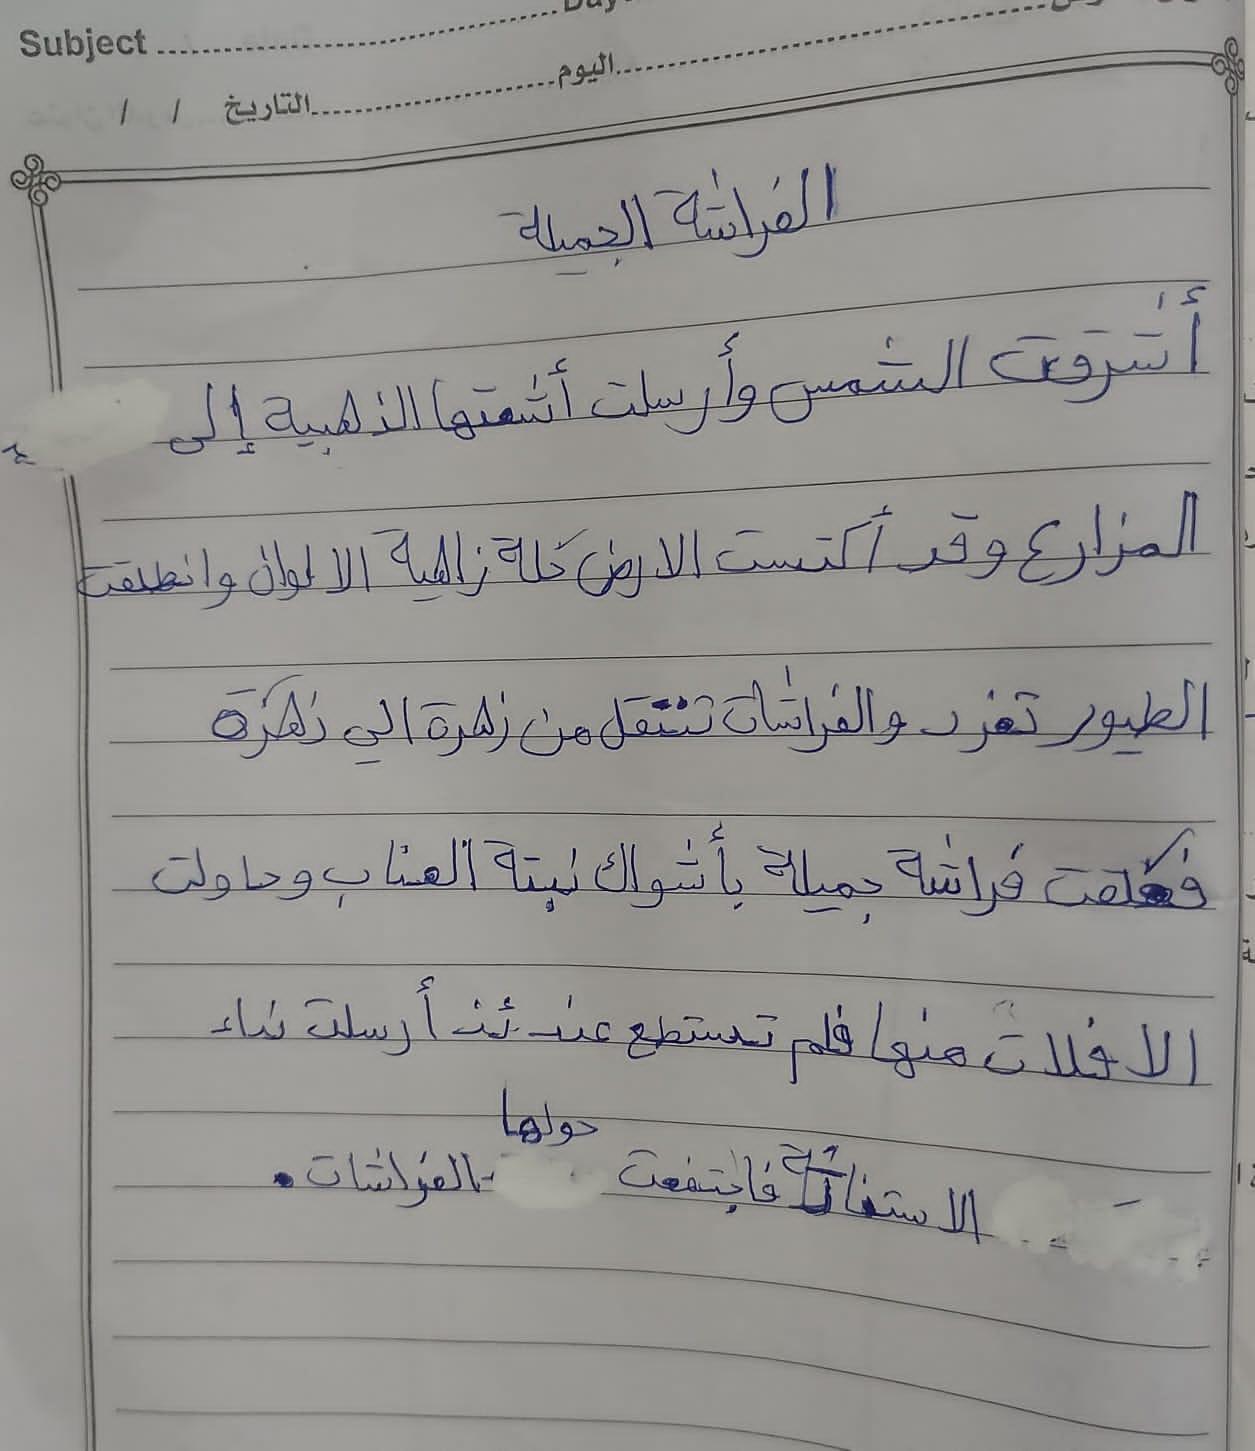 Subject
اليوم
التاريخ / /
الفراشة الجميلة
أشرقت الشمس وأرسلت أشعتها الذهبية إلى
المزارع وقد أكتست الارض حلة زاهية الالوان وانطلقت
الطيور تغرد والفراشات تنتقل من زهرة الي زهرة
فعلقت فراشة جميلة بأشواك نبتة العناب وحاولت
الافلات منها فلم تستطع عندئذ أرسلت نداء
حولها
الاستغاثة فاجتمعت الفراشات.